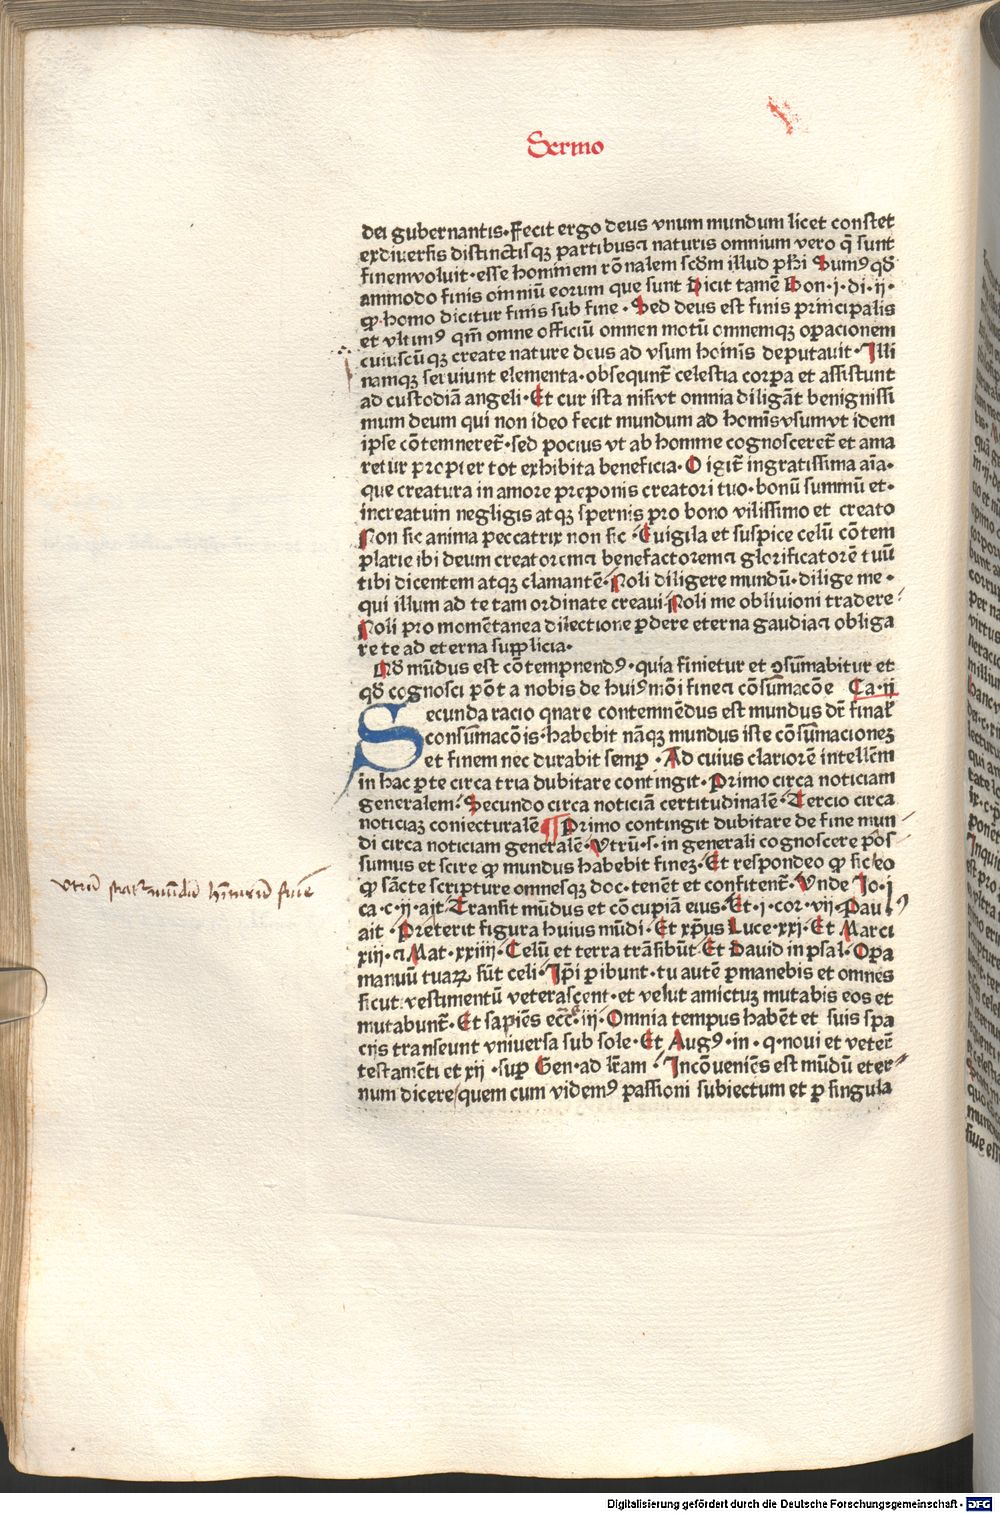 Sermo
dei gubernantis·Fecit ergo deus vnum mundum licet constet
exdiuersis distinctisqꝫ partibus⁊ naturis omnium vero q̄ sunt
finemvoluit·esse hominem rōnalem scd̄m illud ph̄i Sumꝰ qd̄
ammodo finis om̄niū eorum que sunt Dicit tamē Bon·i·di·ii·
ꝙ homo dicitur finis sub fine·Sed deus est finis principalis
et vltimꝰ qm̄ omne officiū omnen motū omnemqꝫ oꝑacionem
cuiuscūqꝫ create nature deus ad vsum hoīnis deputauit·Illi
namqꝫ seruiunt elementa·obsequnt̄ celestia corꝑa et assistunt
ad custodiā angeli·Et cur ista nisi·vt omnia diligāt benignissi
mum deum qui non ideo fecit mundum ad homīs vsum vt idem
ipse cōtemneret̄·sed pocius vt ab homme cognosceret̄ et ama
retur propter tot exhibita beneficia·O igit̄ ingratissima aīa·
que creatura in amore preponis creatori tuo·bonū summū et·
increatum negligis atqꝫ spernis pro bono vilissimo et creato
Non sic anima peccatrix non sic·Euigila et suspice celū cōtem
plarie ibi deum creatorem⁊ benefactorem⁊ glorificatorē tuū
tibi dicentem atqꝫ clamantē·Noli diligere mundū·dilige me·
qui illum ad te tam ordinate creaui Noli me obliuioni tradere
Noli pro momētanea dilectione ꝑdere eterna gaudia⁊ obliga
re te ad eterna supplicia·
Qd̄ mūdus est cōtempnendꝰ·quia finietur et ꝯsūmabitur et
qd̄ cognosci pōt a nobis de huiꝰmōi fine⁊ cōsūmacōe Ca·ii
Secunda racio qnare contemnēdus est mundus dr̄ finał
consūmacōis·habebit nāqꝫ mundus iste cōsūmacioneꝫ
et finem nec durabit semꝑ·Ad cuius clariorē intellēm
in hac ꝑte circa tria dubitare contingit·Primo circa noticiam
generalem·Secundo circa noticiā certitudinalē·Tercio circa
noticiaꝫ coniecturalē ¶ Primo contingit dubitare de fine mun
di circa noticiam generalē·Vtrū·s·in generali cognoscere pōs
sumus et scire ꝙ mundus habebit fineꝫ·Et respondeo ꝙ sic eo
ꝙ sācte scripture omnesqꝫ doc·tenēt et confitent̄·Vnde Io·i
ca·c·ii·ait Transit mūdus et cōcupiā eius·Et·i·cor·vii·Paulꝰ
ait·Preterit figura huius mūdi·Et xp̄us Luce·xxi·Et Marci
xiii·⁊ Mat·xxiiii·Celū et terra trāsibūt·Et Dauid in psal·Oꝑa
manuū tuaꝝ sūt celi·Ip̄i ꝑibunt·tu autē ꝑmanebis et omnes
sicut vestimentū veterascent·et velut amictuꝫ mutabis eos et
mutabunt̄·Et sapiēs eccᷓ·iii·Omnia tempus habēt et suis spa
ciis transeunt vniuersa sub sole·Et Augꝰ·in·q·noui et veteꝛ̄
testamēti et xii·suꝑ Gen·ad lr̄am·Incōueniēs est mūdū eter
num dicere quem cum videmꝰ passioni subiectum et ꝑ singula